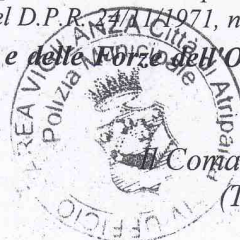 el D.P.R. 24/11/1971, n
e delle Forze dell'O
Il Coma
(T
AREA VIGILANZA Città di Atripalda
Polizia Municipale
IV UFFICIO